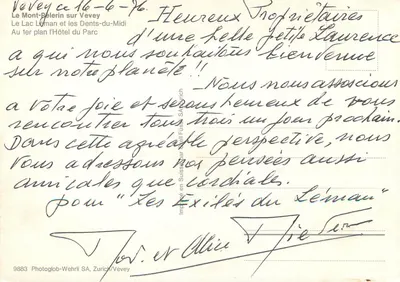 Vevey ce 16-6-76.
Le Mont-Pèlerin sur Vevey
Le Lac Léman et les Dents-du-Midi
Au 1er plan l'Hôtel du Parc
Heureux Propriétaires
d'une belle petite Laurence
a qui nous souhaitons bienvenue
sur notre planète!!
Nous nous associons
a votre joie et serons heureux de vous
rencontrer tous trois un jour prochain.
Dans cette agréable perspective, nous
vous adressons nos pensées aussi
amicales que cordiales.
pour "Les Exilés du Léman"
et
9883 Photoglob-Wehrli SA, Zurich/Vevey